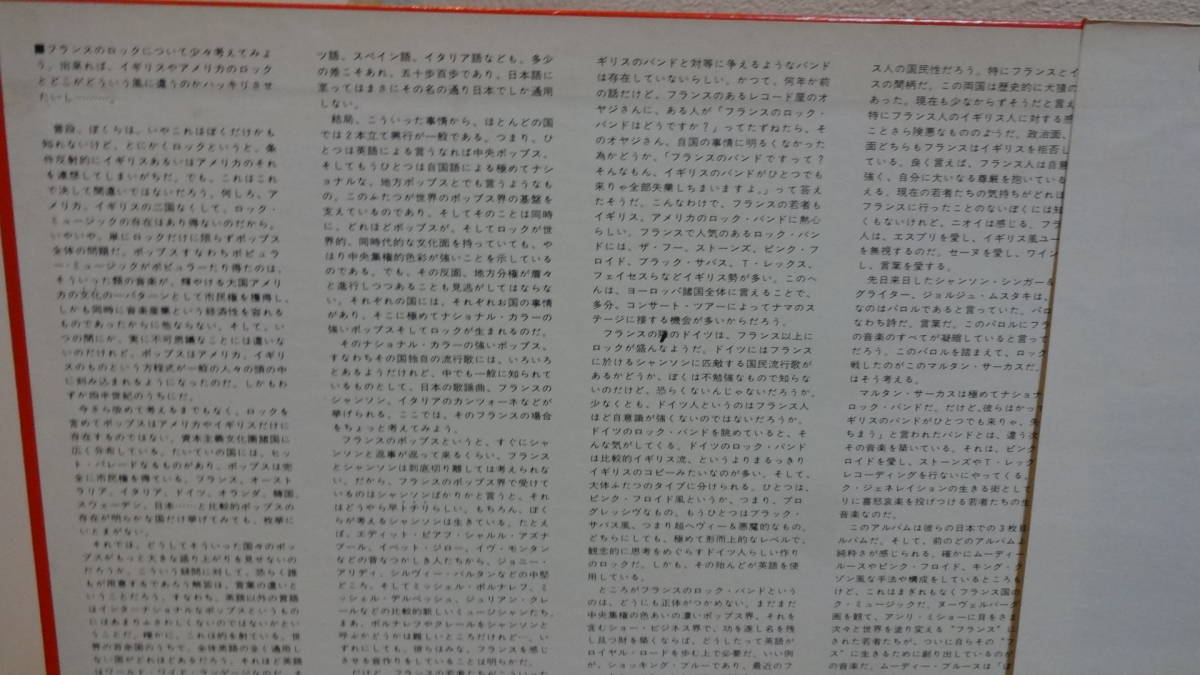 ■フランスのロックについて少々考えてみよ
う。出来れば、イギリスやアメリカのロック
とどこがどういう風に違うのかハッキリさせ
たいし………。
普段、ぼくらは、いやこれはぼくだけかも
知れないけど、とにかくロックというと、条
件反射的にイギリスあるいはアメリカのそれ
を連想してしまいがちだ。でも、これはこれ
で決して間違いではないだろう。何しろ、ア
メリカ、イギリスの二国なくして、ロック・
ミュージックの存在はあり得ないのだから。
いやいや、単にロックだけに限らずポップス
全体の問題だ。ポップスすなわちポピュラ
ー・ミュージックがポピュラーたり得たのは、
そういった類の音楽が、輝やける大国アメリ
カの文化の一パターンとして市民権を獲得し、
しかも同時に音楽産業という経済性を容れる
ものであったからに他ならない。そして、い
つの間にか、実に不可思議なことには違いな
いのだけれど、ポップスはアメリカ、イギリ
スのものという方程式が一般の人々の頭の中
に刻み込まれるようになったのだ。しかもわ
ずか四半世紀のうちにだ。
今さら改めて考えるまでもなく、ロックを
含めてポップスはアメリカやイギリスだけに
存在するものではない。資本主義文化圏諸国に
広く分布している。たいていの国には、ヒッ
ト・パレードなるものがあり、ポップスは完
全に市民権を得ている。フランス、オースト
ラリア、イタリア、ドイツ、オランダ、韓国、
スウェーデン、日本……と比較的ポップスの
存在が明らかな国だけ挙げてみても、枚挙に
いとまがない。
それでは、どうしてそういった国々のポッ
プスがもっと大きな盛り上がりを見せないの
だろうか。こういう疑問に対して、恐らく誰
もが用意するであろう解答は、言葉の違いと
いうことだろう。すなわち、英語以外の言語
はインターナショナルなポップスというもの
にはあまりふさわしくないのではないかとい
うことだ。確かに、これは的を射ている。世
界の百余国のうちで、全体英語の全く通用し
ない国がどれほどあるだろう。それほど英語
はワールド・ワイド・ランゲージなのだ。ま
ツ語、スペイン語、イタリア語なども、多少
の差こそあれ、五十歩百歩であり、日本語に
至ってはまさにその名の通り日本でしか通用
しない。
結局、こういった事情から、ほとんどの国
では2本立て興行が一般である。つまり、ひ
とつは英語による言うなれば中央ポップス、
そしてもうひとつは自国語による極めてナシ
ョナルな、地方ポップスとでも言うようなも
の。このふたつが世界のポップス界の基盤を
支えているのであり、そしてそのことは同時
に、どれほどポップスが、そしてロックが世
界的、同時代的な文化面を持っていても、や
はり中央集権的色彩が強いことを示している
のである。でも、その反面、地方分権が層々
と進行しつつあることも見逃がしてはならな
い。それぞれの国には、それぞれお国の事情
があり、そこに極めてナショナル・カラーの
強いポップスそしてロックが生まれるのだ。
そのナショナル・カラーの強いポップス、
すなわちその国独自の流行歌には、いろいろ
とあるようだけれど、中でも一般に知られて
いるものとして、日本の歌謡曲、フランスの
シャンソン、イタリアのカンツォーネなどが
挙げられる。ここでは、そのフランスの場合
をちょっと考えてみよう。
フランスのポップスというと、すぐにシャ
ンソンと返事が返って来るくらい、フランス
とシャンソンは到底切り離しては考えられな
い。だから、フランスのポップス界で受けて
いるのはシャンソンばかりかと言うと、それ
はどうやら早トチリらしい。もちろん、ぼく
らが考えるシャンソンは生きている。たとえ
ば、エディット・ピアフ、シャルル・アズナ
ブール、イベット・ジロー、イヴ・モンタン
などの昔なつかしき人たちから、ジョニー・
アリディ、シルヴィー・バルタンなどの中堅
どころ、そしてミッシェル・ポルナレフ、ミ
ッシェル・デルペッシュ、ジュリアン・クレ
ールなどの比較的新しいミュージシャンたち。
まあ、ポルナレフやクレールをシャンソンと
呼ぶかどうかは難しいところだけれど…、い
ずれにしても、彼らはみな、フランスを感じ
させる音作りをしていることは明らかだ。
だけど、フランスの若者たちがこういった
ギリスのバンドと対等に争えるようなバンド
は存在していないらしい。かつて、何年か前
の話だけど、フランスのあるレコード屋のオ
ヤジさんに、ある人が「フランスのロック・
バンドはどうですか？」ってたずねたら、そ
のオヤジさん、自国の事情に明るくなかった
為かどうか、「フランスのバンドですって？
そんなもん、イギリスのバンドがひとつでも
来りゃ全部失業しちまいますよ。」って答え
たそうだ。こんなわけで、フランスの若者も
イギリス、アメリカのロック・バンドに熱心
らしい。フランスで人気のあるロック・バン
ドには、ザ・フー、ストーンズ、ピンク・フ
ロイド、ブラック・サバス、T・レックス、
フェイセスらなどイギリス勢が多い。このへ
んは、ヨーロッパ諸国全体に言えることで、
多分、コンサート・ツアーによってナマのス
テージに接する機会が多いからだろう。
フランスの隣のドイツは、フランス以上に
ロックが盛んなようだ。ドイツにはフランス
に於けるシャンソンに匹敵する国民流行歌が
あるかどうか、ぼくは不勉強なもので知らな
いのだけど、恐らくないんじゃないだろうか。
少なくとも、ドイツ人というのはフランス人
ほど自意識が強くないのではないだろうか。
ドイツのロック・バンドを眺めていると、そ
んな気がしてくる。ドイツのロック・バンド
は比較的イギリス流、というよりまるっきり
イギリスのコピーみたいなのが多い。そして、
大体ふたつのタイプに分けられる。ひとつは、
ピンク・フロイド風というか、つまり、プロ
グレッシヴなもの。もうひとつはブラック・
サバス風、つまり超ヘヴィー＆悪魔的なもの。
どちらにしても、極めて形而上的なレベルで、
観念的に思考をめぐらすドイツ人らしい作り
のロックだ。しかも、その殆んどが英語を使
用している。
ところがフランスのロック・バンドという
のは、どうにも正体がつかめない。まだまだ
中央集権の色あいの濃いポップス界、それを
含むショー・ビジネス界で、功を遂し名を残
し且つ財を築くならば、どうしたって英語が
ロイヤル・ロードを歩む上で必要だ。いい例
が、ショッキング・ブルーであり、最近のフ
ス人の国民性だろう。特にフランスとイ
スの間柄だ。この両国は歴史的に犬猿の
あった。現在も少なからずそうだと言え
特にフランス人のイギリス人に対する感
ことさら険悪なもののようだ。政治面、
面どちらもフランスはイギリスを拒否し
ている。良く言えば、フランス人は自意
強く、自分に大いなる尊厳を抱いている
える。現在の若者たちの気持ちがどれほ
フランスに行ったことのないぼくには知
くもないけれど、ニオイは感じる。フラ
人は、エスプリを愛し、イギリス風ユー
を無視するのだ。セーヌを愛し、ワイン
し、言葉を愛する。
先日来日したシャンソン・シンガー＆
グライター、ジョルジュ・ムスタキは、
なのはパロルであると言っていた。パロ
なわち詩だ。言葉だ。このパロルにフラ
の音楽のすべてが凝縮していると言って
だろう。このパロルを踏まえて、ロック
戦したのがこのマルタン・サーカスだ。
はそう考える。
マルタン・サーカスは極めてナショナ
ロック・バンドだ。だけど、彼らはかつ
ギリスのバンドがひとつでも来りゃ、失
ちまう」と言われたバンドとは、違う次
その音楽を築いている。それは、ピンク
ロイドを愛し、ストーンズやT・レック
レコーディングを行ないにやってくる、
ク・ジェネレイションの生きる街として
りに喜怒哀楽を投げつける若者たちの生
音楽なのだ。
このアルバムは彼らの日本での3枚目
ルバムだ。そして、前のどのアルバムよ
純粋さが感じられる。確かにムーディー
ルースやピンク・フロイド、キング・ク
ゾン風な手法や構成をしているところも
けど、これはまぎれもなくフランス国の
ク・ミュージックだ。ヌーヴェルバーグ
画を観て、アンリ・ミショーに目をさま
次々と世界を塗り変える“フランス”に
された若者たちが、ついに自らその“フ
ス”に生きるために創り出しているのが
の音楽だ。ムーディー・ブルースは「ほ